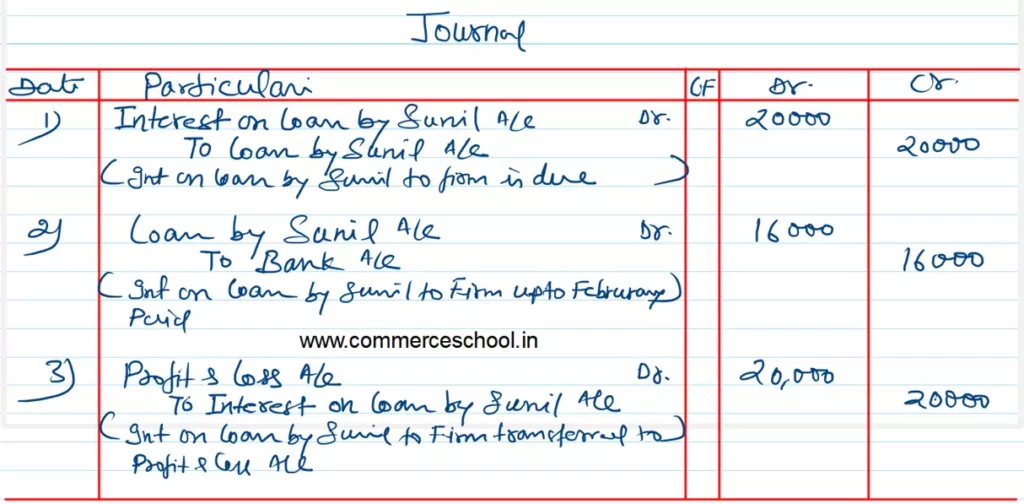 Journal
Date Particulari CF Dr. Cr.
1) Interest on Loan by Sunil A/c Dr. 20000
To Loan by Sunil A/c 20000
(Int on loan by Sunil to firm is due)
2) Loan by Sunil A/c Dr. 16000
To Bank A/c 16000
(Int on loan by Sunil to Firm upto Februrary)
Paid
www.commerceschool.in
3) Profit & Loss A/c Dr. 20,000
To Interest on loan by Sunil A/c 20000
(Int on loan by Sunil to Firm transferred to)
Profit & Loss A/c